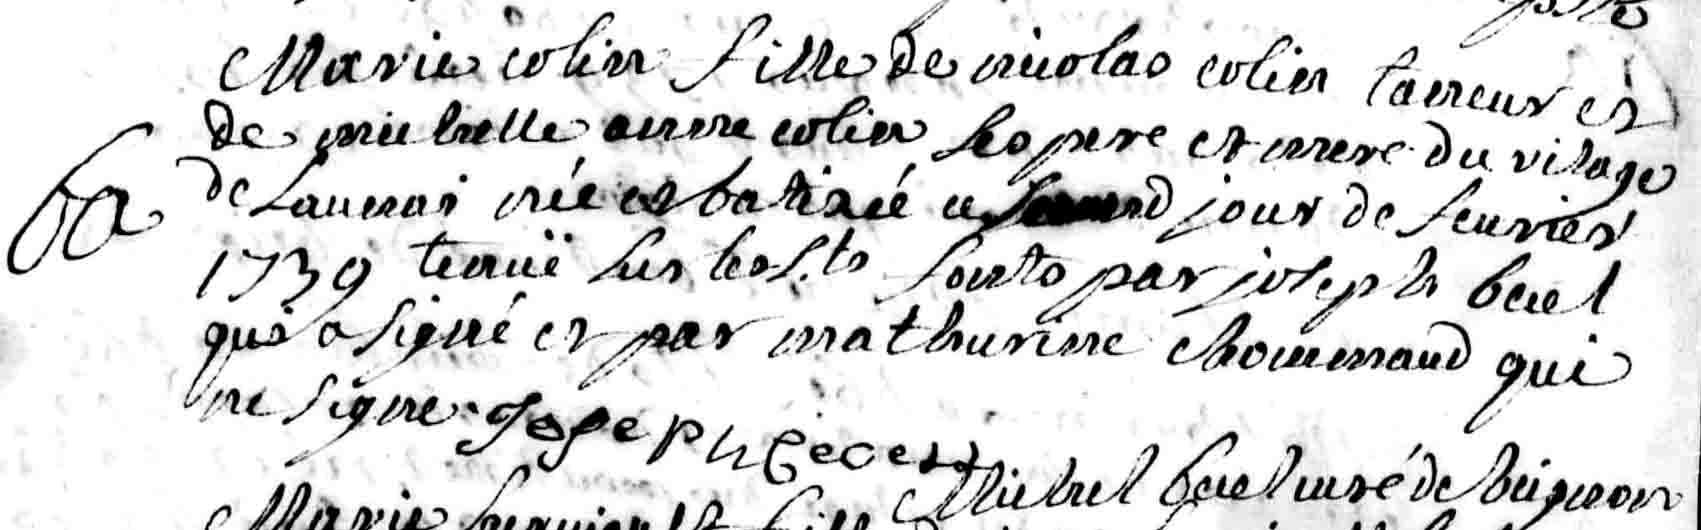 Marie colin fille de nicolas colin taneur et
de michelle anne colin ses pere et mere du vilage
de Launai née et batisée ce second jour de feurier
1739 tenuë sur les s.ts fonts par joseph becel
qui a signé et par mathurine chommaud qui
ne signe. Joseph Becel
Michel becel curé de beignon
Marie